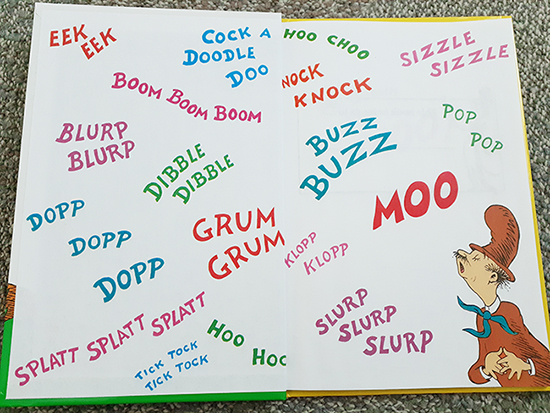 EEK
EEK
COCK A
DOODLE
DOO
BOOM BOOM BOOM
BLURP
BLURP
DIBBLE
DIBBLE
DOPP
DOPP
DOPP
GRUM
GRUM
SPLATT SPLATT SPLATT
HOO HOO
TICK TOCK
TICK TOCK
HOO CHOO
SIZZLE
SIZZLE
NOCK
KNOCK
POP
POP
BUZZ
BUZZ
MOO
KLOPP
KLOPP
SLURP
SLURP
SLURP